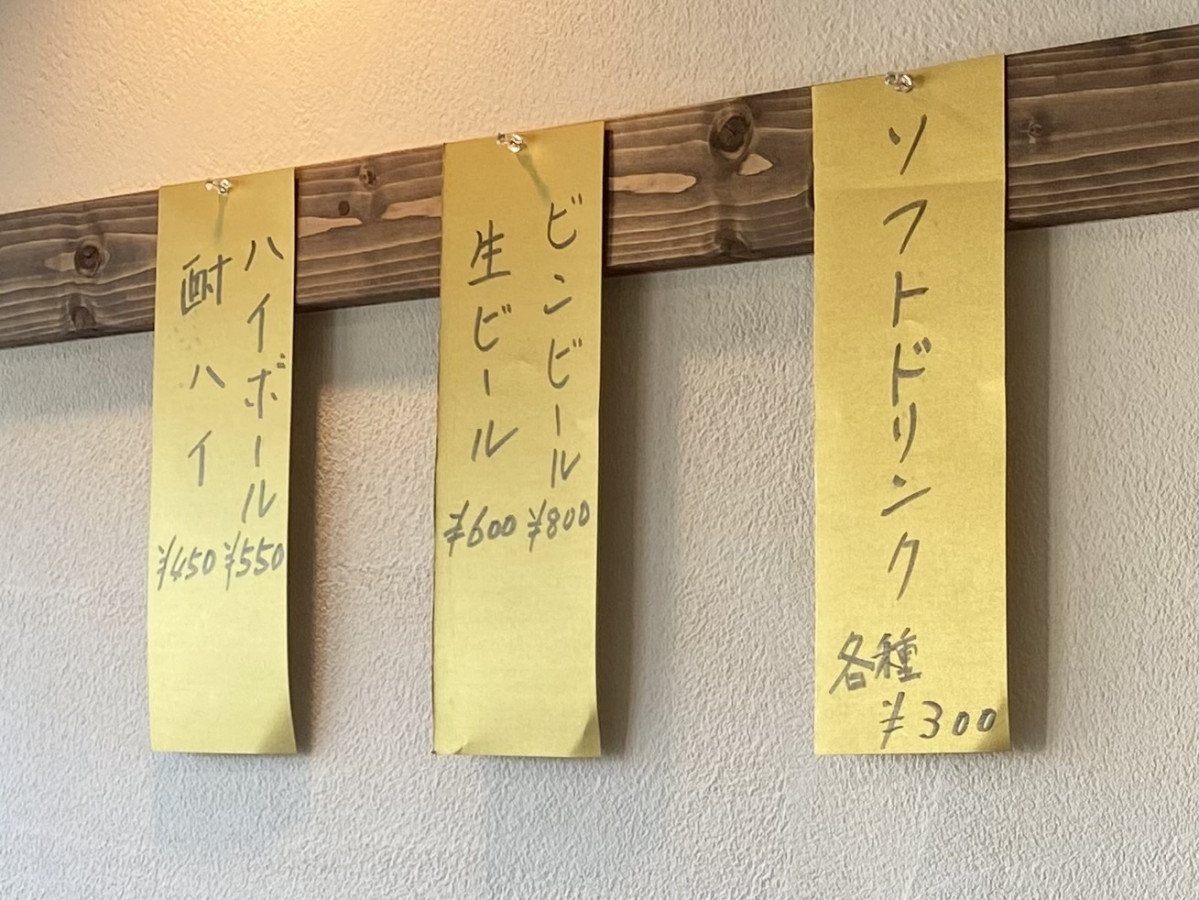 ソフトドリンク
各種
¥300
ビンビール
¥800
生ビール
¥600
ハイボール
¥550
酎ハイ
¥450